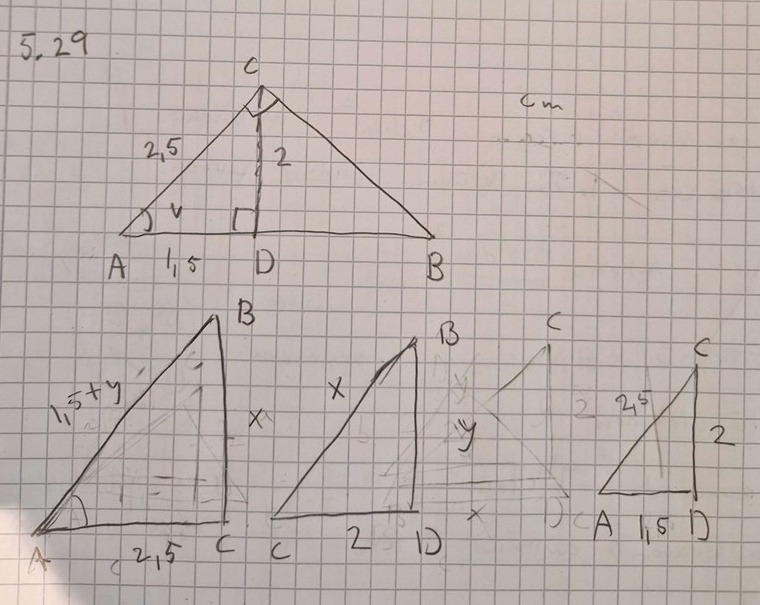 5.29
C
cm
2,5
2
v
A 1,5 D B
B B C C
1,5+y x x y 2,5 2
A 2,5 C C 2 D x D A 1,5 D